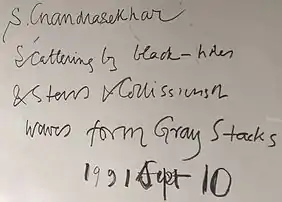 S. Chandrasekhar
Scattering by black-holes
& Stars & Collission
waves form Gray Stacks
1991 Sept 10